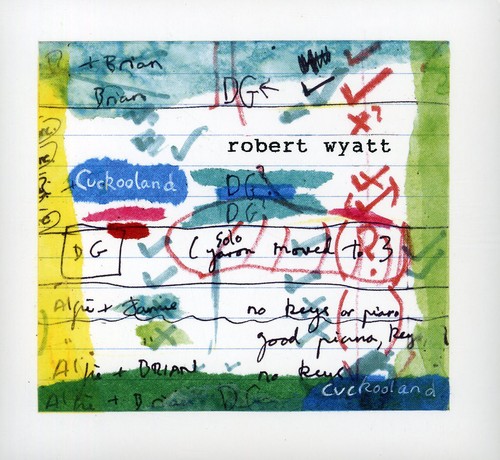 + Brian
Brian DG ←
robert wyatt
Cuckooland DG?
DG
DG ( Solo
moved to 3
Alfie + Jamie no keys or piano
good piano, key
Alfie + BRIAN no keys
cuckooland
Alfie + Brian DG